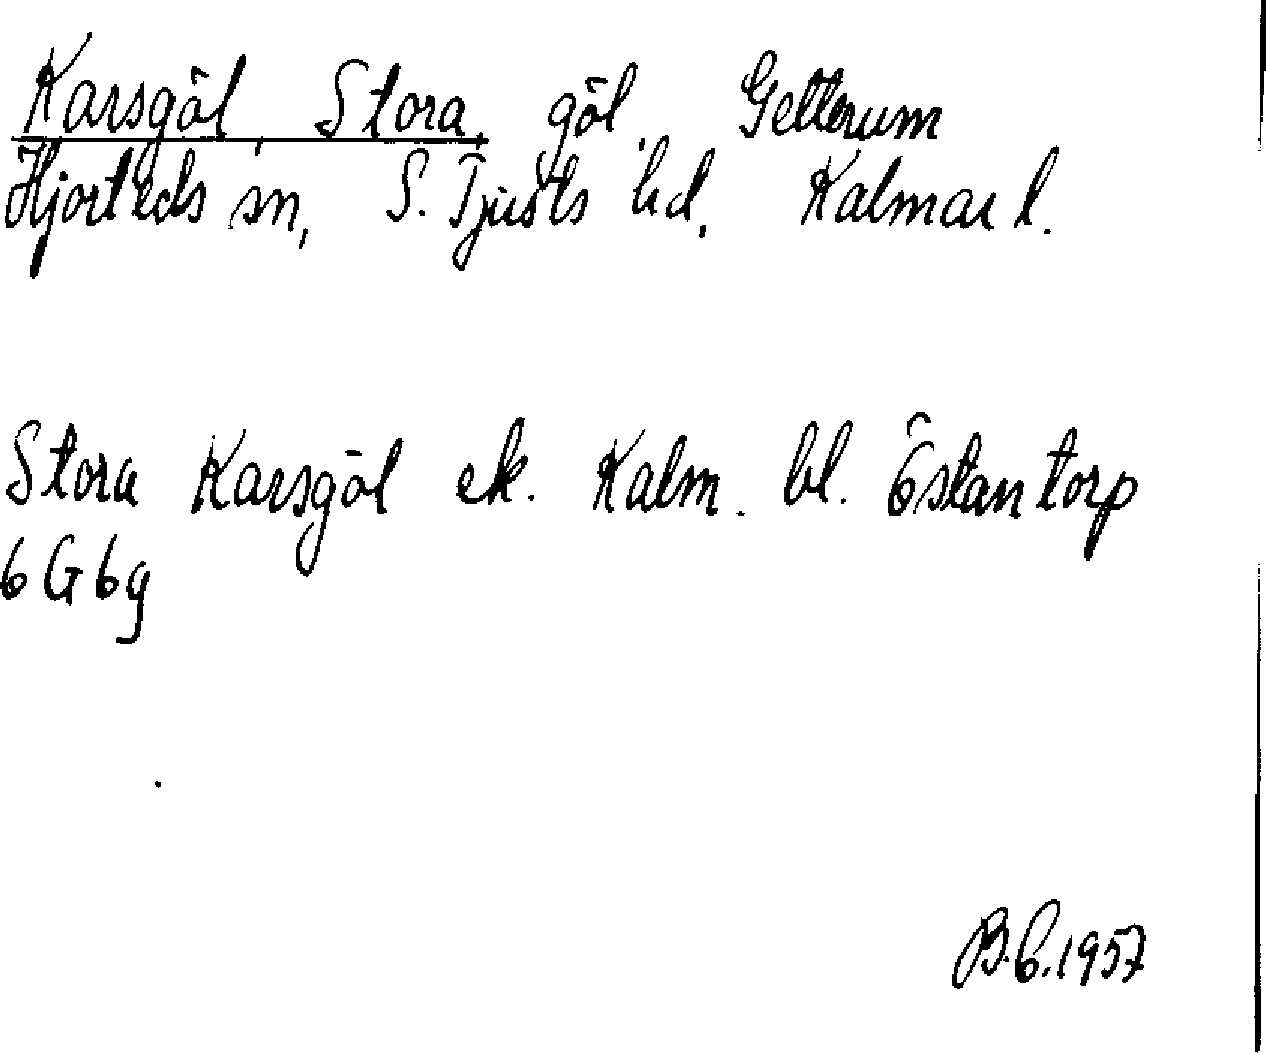 Karsgöl, Stora, göl. Getterum
Hjorteds sn, S. Tjusts hd, Kalmar l.
Stora Karsgöl ek. Kalm. bl. Östantorp
6 G 6g
B.C.1957